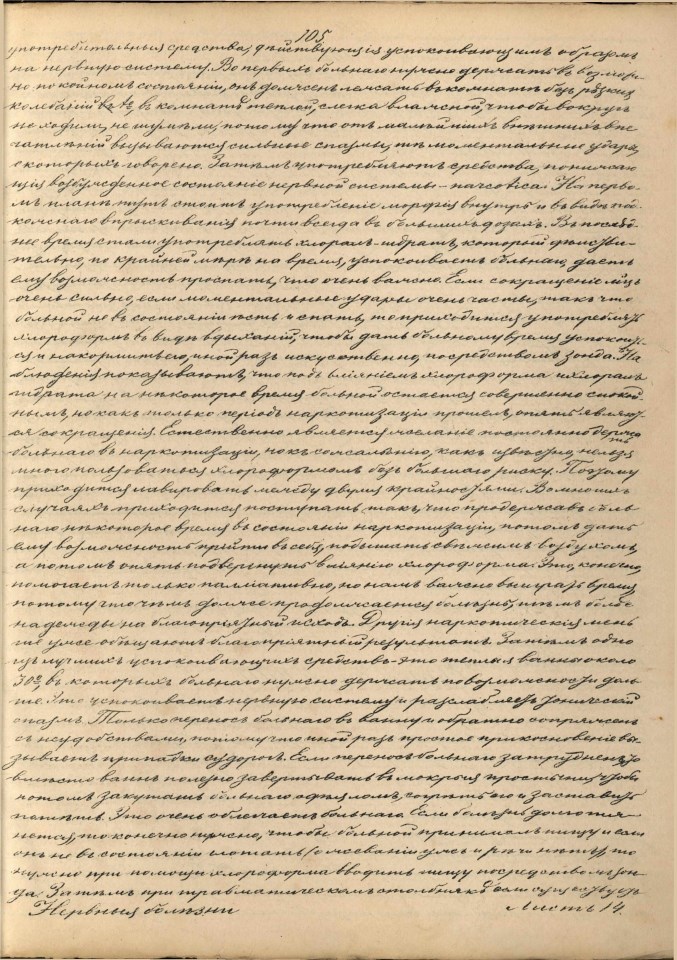 105
употребительныя средства, дѣйствующія успокоивающимъ образомъ
на нервную систему. Во первыхъ больнаго нужно держать въ возмож-
но покойномъ состояніи, онъ долженъ лежать въ комнатѣ безъ рѣзкихъ
колебаній t°, въ комнатѣ теплой, слегка влажной, чтобы вокругъ
не ходили, не шумѣли, потому что отъ малѣйшихъ внѣшнихъ впе
чатлѣній вызываются сильные спазмы, тѣ моментальные удары,
о которыхъ говорено. Затѣмъ употребляютъ средства, понижаю
щія возбужденное состояніе нервной системы – narcotica. На перво
мъ планѣ тутъ стоитъ употребленіе морфія внутрь и въ видѣ под-
кожнаго впрыскиванія почти всегда въ большихъ дозахъ. Въ послѣд
нее время стали употреблять хлоралъ-гидратъ, который дѣйстви-
тельно, по крайней мѣрѣ на время, успокоиваетъ больнаго, даетъ
ему возможность проспать, что очень важно. Если сокращеніе мышцъ
очень сильно, если моментальные удары очень часты, такъ что
больной не въ состояніи ѣсть и спать, то приходится употреблять
хлороформъ въ видѣ вдыханій, чтобы дать больному время успокоить
ся и накормить его, иной разъ искусственно, посредствомъ зонда. На
блюденія показываютъ, что подъ вліяніемъ хлороформа и хлоралъ
гидрата на нѣкоторое время больной остается совершенно спокой
нымъ, но какъ только періодъ наркотизаціи прошелъ, опять являют
ся сокращенія. Естественно является желаніе постоянно держать
больнаго въ наркотизаціи, но къ сожалѣнію, какъ извѣстно, нельзя
много пользоваться хлороформомъ безъ большаго риску. Поэтому
приходится лавировать между двумя крайностями. Во многихъ
случаяхъ приходится поступать такъ, что продержавъ боль
наго нѣкоторое время въ состояніи наркотизаціи, потомъ дать
ему возможность прійти въ себя, подышать свѣжимъ воздухомъ,
а потомъ опять подвергнуть вліянію хлороформа. Это, конечно,
помогаетъ только палліативно, но намъ важно выиграть время,
потому что чѣмъ долѣе продолжается болѣзнь, тѣмъ болѣе
надежды на благопріятный исходъ. Другія наркотическія мень
ше уже обѣщаютъ благопріятный результатъ. Затѣмъ одно
изъ лучшихъ успокоивающихъ средствъ – это теплыя ванны около
30°, въ которыхъ больнаго нужно держать по возможности доль
ше. Это успокоиваетъ нервную систему и разслабляетъ тоническій
спазмъ. Только переносъ больнаго въ ванну и обратно сопряженъ
съ неудобствами, потому что иной разъ простое прикосновеніе вы-
зываетъ припадки судорогъ. Если переносъ больнаго затрудненъ, то
вмѣсто ваннъ полезно завертывать въ мокрыя простыни, чтобы
потомъ закутать больнаго одѣяломъ, согрѣть его и заставить
потѣть. Это очень облегчаетъ больнаго. Если болѣзнь долго тя-
нется, то конечно нужно, чтобы больной принималъ пищу и если
онъ не въ состояніи глотать (о жеваніи ужъ и рѣчи нѣтъ), то
нужно при помощи хлороформа вводить пищу посредствомъ зон-
да. Затѣмъ при травматическомъ столбнякѣ если существуетъ
Нервныя болѣзни Листъ 14.